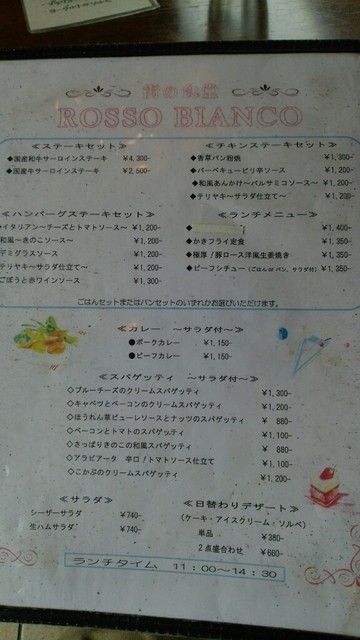 ROSSO BIANCO
≪ステーキセット≫
◆国産和牛サーロインステーキ ¥4,300-
◆国産牛サーロインステーキ ¥2,600-
≪チキンステーキセット≫
◆香草パン粉焼 ¥1,300-
◆バーベキューピリ辛ソース ¥1,200-
◆和風あんかけ～バルサミコソース～ ¥1,200-
◆テリヤキ～サラダ仕立て～ ¥1,200-
≪ハンバーグステーキセット≫
イタリアン～チーズとトマトソース～ ¥1,200-
和風～きのこソース～ ¥1,200-
デミグラスソース ¥1,200-
テリヤキ～サラダ仕立て～ ¥1,200-
ごぼうと赤ワインソース ¥1,300-
≪ランチメニュー≫
◆ ¥1,400-
◆かきフライ定食 ¥1,350-
◆極厚！豚ロース洋風生姜焼き ¥1,350-
◆ビーフシチュー（ごはん or パン、サラダ付） ¥1,350-
ごはんセットまたはパンセットのいずれかお選びいただけます。
≪カレー ～サラダ付～≫
●ポークカレー ¥1,150-
●ビーフカレー ¥1,150-
≪スパゲッティ ～サラダ付～≫
◇ブルーチーズのクリームスパゲッティ ¥1,300-
◇キャベツとベーコンのクリームスパゲッティ ¥1,200-
◇ほうれん草ピューレソースとナッツのスパゲッティ ¥ 880-
◇ベーコンとトマトのスパゲッティ ¥1,100-
◇さっぱりきのこの和風スパゲッティ ¥ 880-
◇アラビアータ 辛口！トマトソース仕立て ¥1,100-
◇こかぶのクリームスパゲッティ ¥1,200-
≪サラダ≫
シーザーサラダ ¥740-
生ハムサラダ ¥740-
≪日替わりデザート≫
（ケーキ・アイスクリーム・ソルベ）
単品 ¥380-
２点盛合わせ ¥660-
ランチタイム １１：００～１４：３０